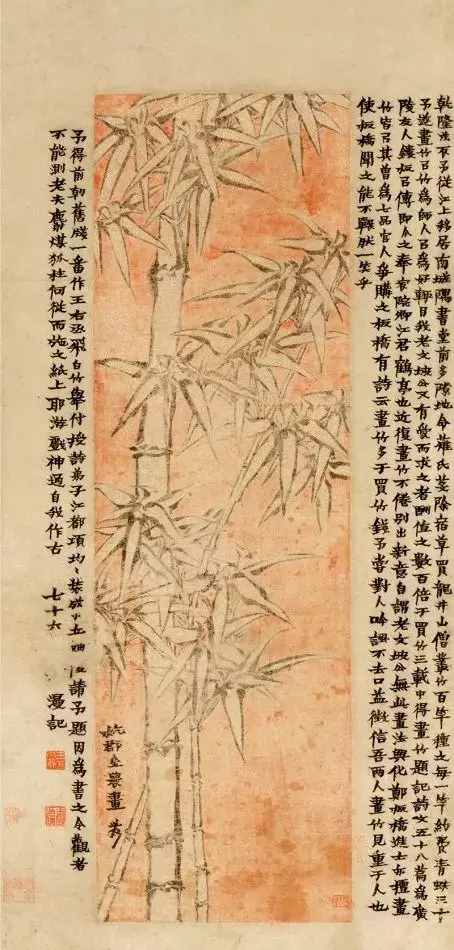 乾隆戊予從江上移居南城隅書堂前多隙地令薙氏芟除宿草買龍井山僧叢竹百竿種之每一竿約費青蚨三十
予遂畫竹以竹為師人以為好輒自我老文坡公又有愛而求之者酬值之數百倍于買竹三載中得畫竹題記詩文五十八篇為廣
陵友人鏤板以傳即今之奉宸院卿江君鶴亭也近復畫竹不倦別出新意自謂老文坡公無此畫法興化鄭板橋進士亦擅畫
竹皆以其曾為七品官人爭購之板橋有詩云畫竹多于買竹錢予嘗對人吟諷不去口益徵信吾兩人畫竹見重于人也
使板橋聞之能不囅然一笑乎
杭郡金農畫
予得前朝舊牋一番作王右丞飛白竹舉付授詩弟子江都項均々裝潢小立請予題因為書之令觀者
不能測老夫麝煤狐柱何從而施之紙上耶游戲神通自我作古 七十六 漫記